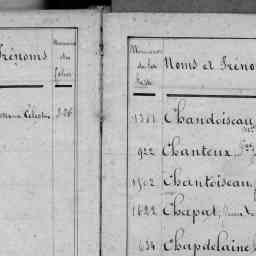 Prénoms
Numéros
des
folios
Célestin 326
Numéros
de la
Noms et Préno
1311 Chandoiseau
922 Chanteux
1502 Chantoiseau
1622 Chapat,
634 Chapdelaine